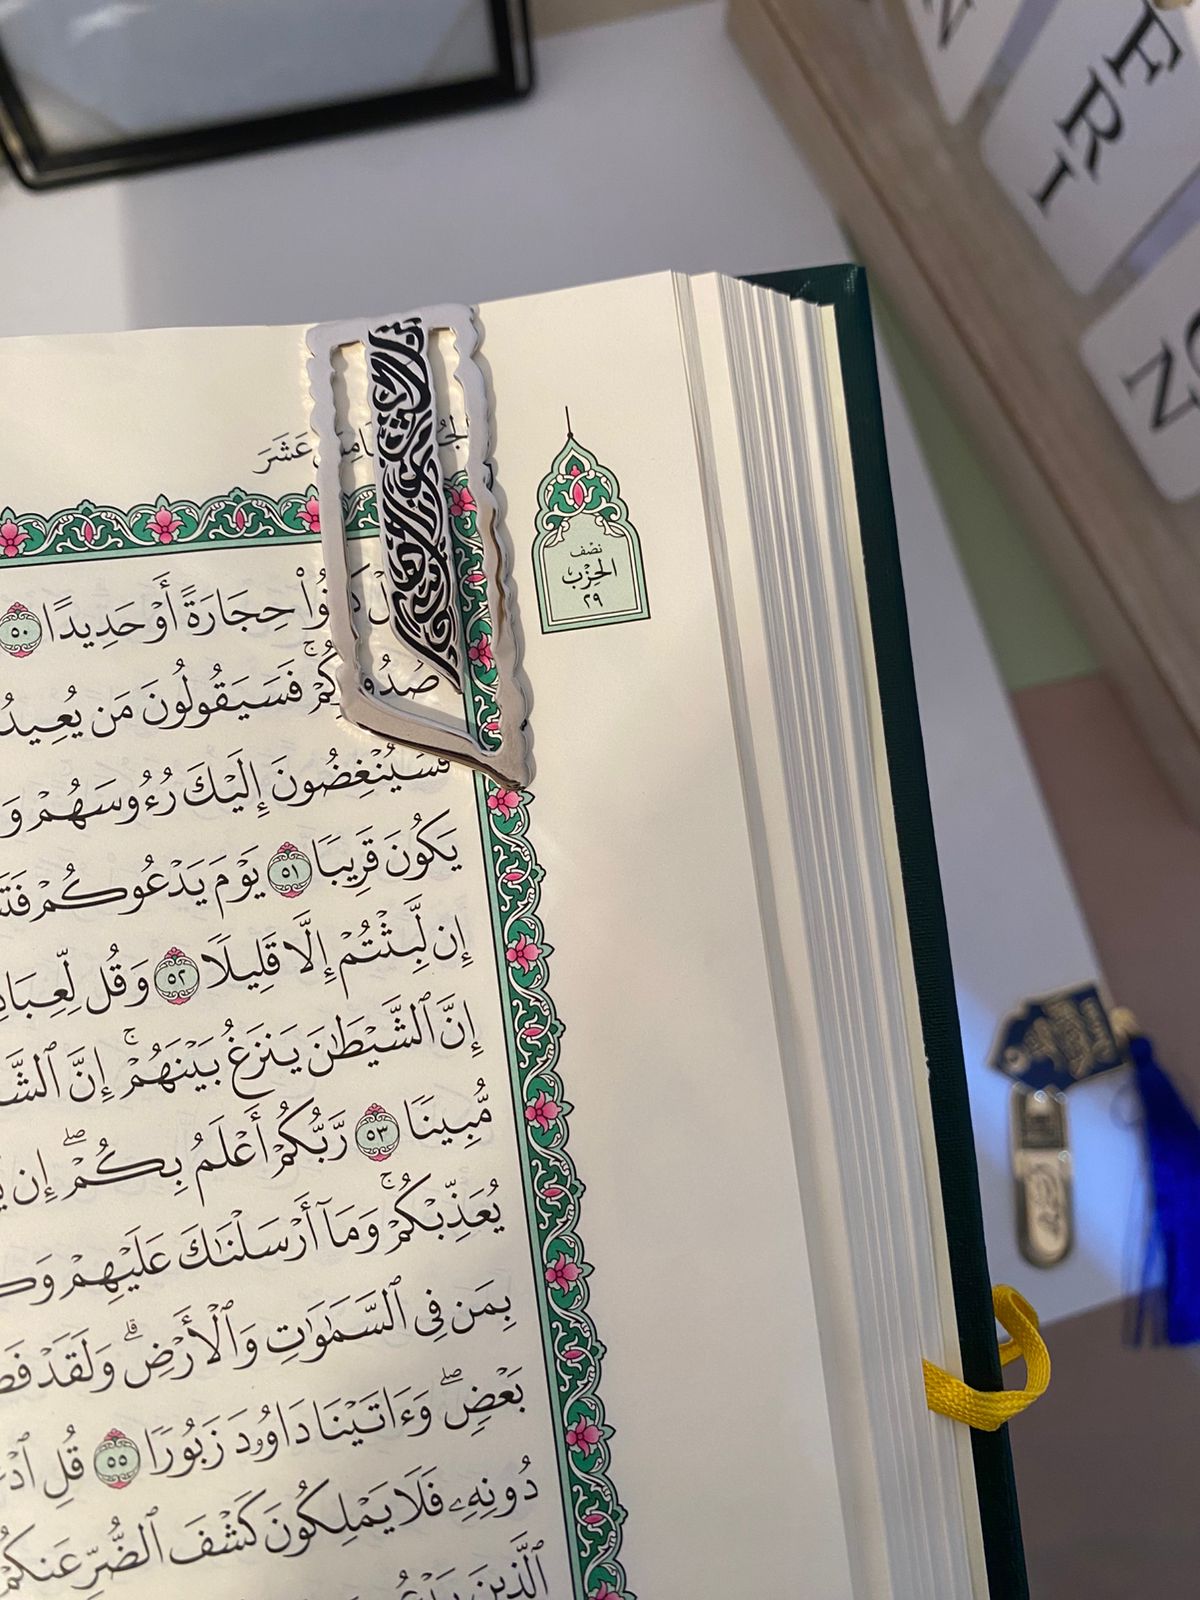 عَشَرَ
نصف
الحِزْب
٢٩
حِجَارَةً أَوْ حَدِيدًا ٥٠
صُدُورِكُمْ ۚ فَسَيَقُولُونَ مَن يُعِيدُ
فَسَيُنْغِضُونَ إِلَيْكَ رُءُوسَهُمْ وَ
يَكُونَ قَرِيبًا ٥١ يَوْمَ يَدْعُوكُمْ
إِن لَّبِثْتُمْ إِلَّا قَلِيلًا ٥٢ وَقُل لِّعِبَادِ
إِنَّ ٱلشَّيْطَٰنَ يَنزَغُ بَيْنَهُمْ ۚ إِنَّ
مُّبِينًا ٥٣ رَّبُّكُمْ أَعْلَمُ بِكُمْ ۖ إِن
يُعَذِّبْكُمْ ۚ وَمَآ أَرْسَلْنَٰكَ عَلَيْهِمْ
بِمَن فِى ٱلسَّمَٰوَٰتِ وَٱلْأَرْضِ ۗ وَلَقَدْ
بَعْضٍ ۖ وَءَاتَيْنَا دَاوُۥدَ زَبُورًا ٥٥ قُلِ
دُونِهِۦ فَلَا يَمْلِكُونَ كَشْفَ ٱلضُّرِّ عَنكُمْ
ٱلَّذِينَ
FRI